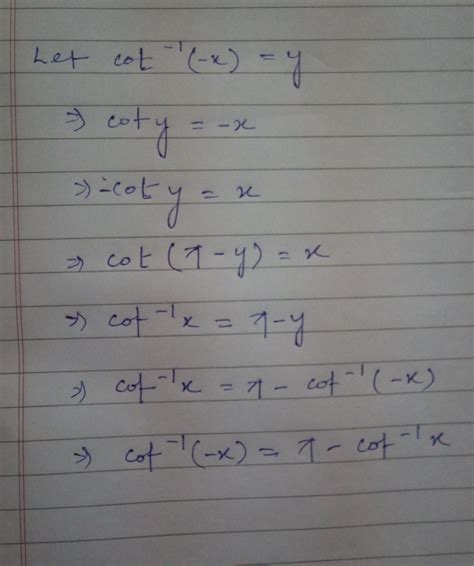 Let cot⁻¹(-x) = y
⇒ cot y = -x
⇒ -cot y = x
⇒ cot (π - y) = x
⇒ cot⁻¹x = π - y
⇒ cot⁻¹x = π - cot⁻¹(-x)
⇒ cot⁻¹(-x) = π - cot⁻¹x